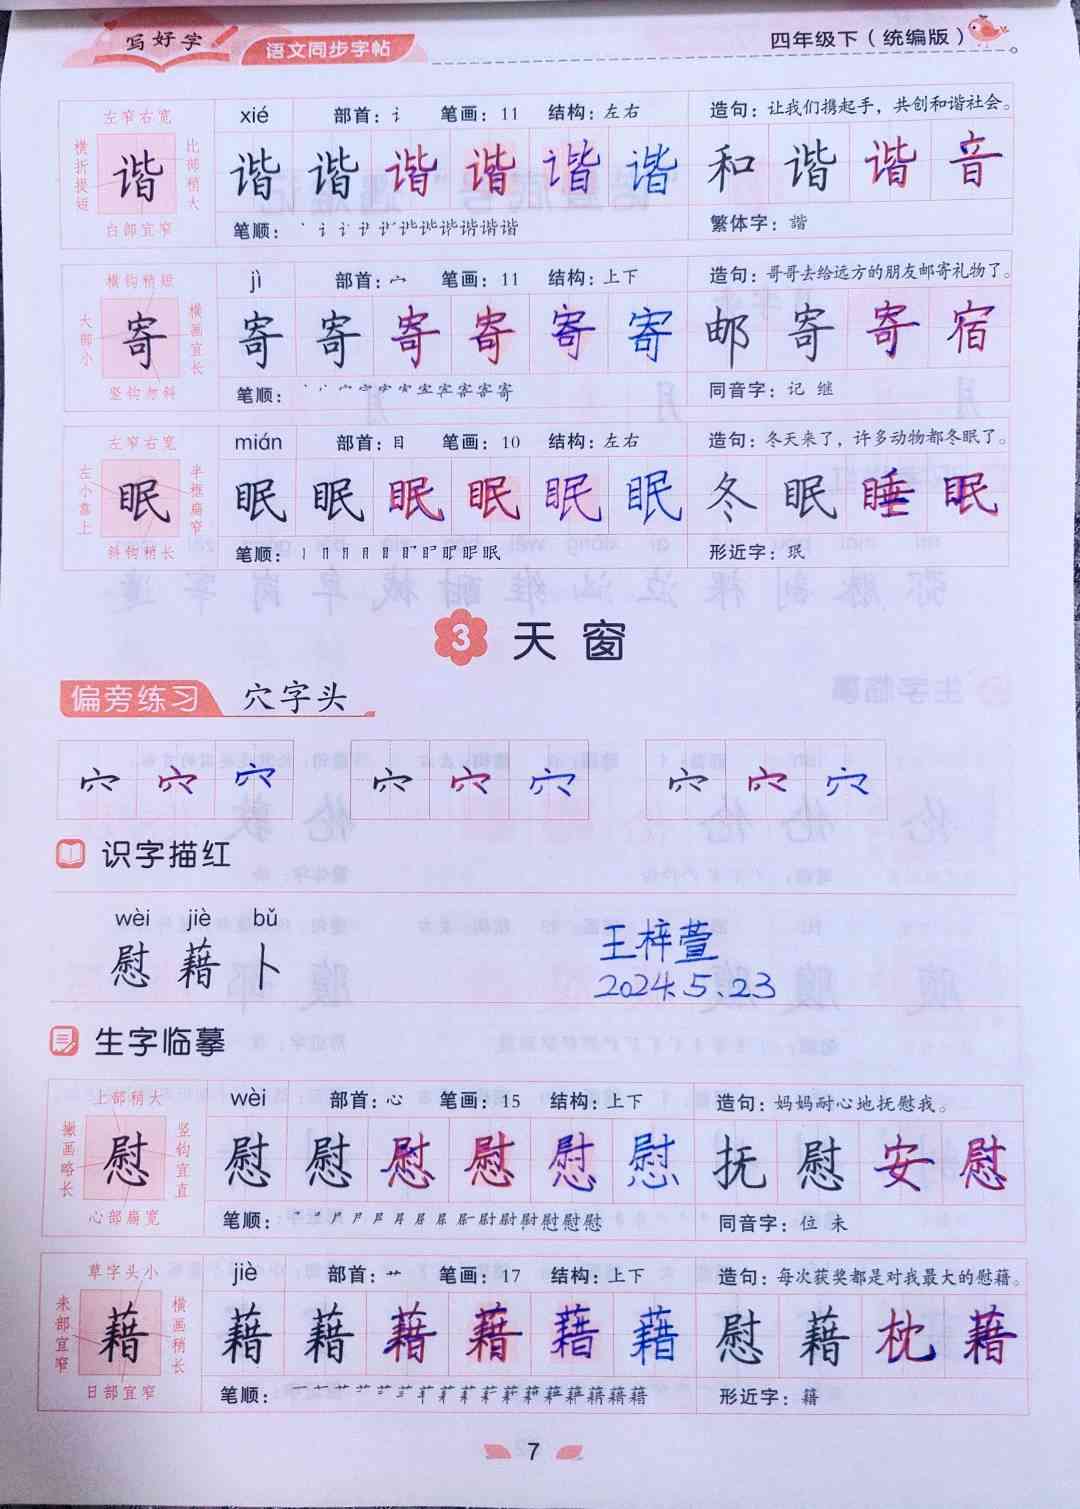 写好字 语文同步字帖 四年级下（统编版）
左窄右宽 xié 部首：讠 笔画：11 结构：左右 造句：让我们携起手，共创和谐社会。
横折提短 谐 比部稍大 谐 谐 谐 谐 谐 谐 和 谐 谐 音
白部宜窄 笔顺： 繁体字：諧
横钩稍短 jì 部首：宀 笔画：11 结构：上下 造句：哥哥去给远方的朋友邮寄礼物了。
大部小 寄 横画宜长 寄 寄 寄 寄 寄 寄 邮 寄 寄 宿
竖钩勿斜 笔顺： 同音字：记 继
左窄右宽 mián 部首：目 笔画：10 结构：左右 造句：冬天来了，许多动物都冬眠了。
左小靠上 眠 半框扁窄 眠 眠 眠 眠 眠 眠 冬 眠 睡 眠
斜钩稍长 笔顺： 形近字：珉
3 天窗
偏旁练习 穴字头
穴 穴 穴 穴 穴 穴 穴 穴 穴
识字描红
wèi jiè bǔ
慰 藉 卜
王梓萱
2024.5.23
生字临摹
上部稍大 wèi 部首：心 笔画：15 结构：上下 造句：妈妈耐心地抚慰我。
撇画略长 慰 竖钩宜直 慰 慰 慰 慰 慰 慰 抚 慰 安 慰
心部扁宽 笔顺： 同音字：位 未
草字头小 jiè 部首：艹 笔画：17 结构：上下 造句：每次获奖都是对我最大的慰藉。
耒部宜窄 藉 横画稍长 藉 藉 藉 藉 藉 藉 慰 藉 枕 藉
日部宜窄 笔顺： 形近字：籍
7